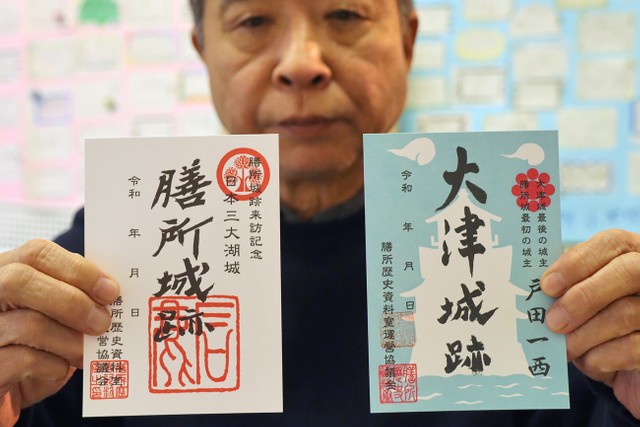 膳所城跡来訪記念
日本三大湖城
膳所城跡
令和 年 月 日
大津城最後の城主
膳所城最初の城主
戸田一西
大津城跡
令和 年 月 日
膳所歴史資料室運営協議会